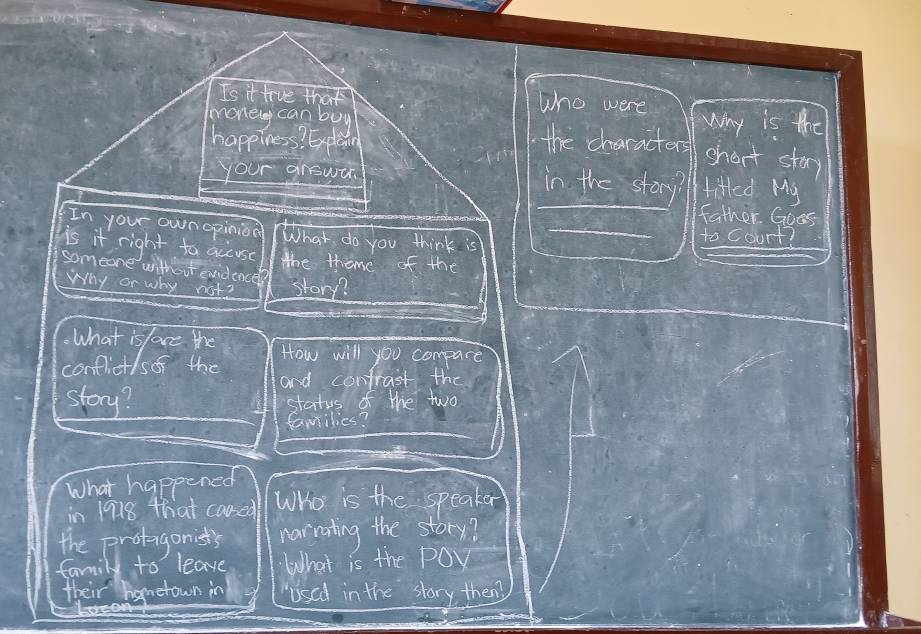 Is it true that
money can buy
happiness? Explain
your answer.
In your own opinion
is it right to accuse
someone without evidence?
Why or why not?
What do you think is
the theme of the
story?
What is/are the
conflict/s of the
story?
How will you compare
and contrast the
status of the two
families?
What happened
in 1918 that caused
the protagonist's
family to leave
their hometown in
Luzon?
Who is the speaker
narrating the story?
What is the POV
used in the story then?
Who were
the characters
in the story?
Why is the
short story
titled My
Father Goes
to Court?